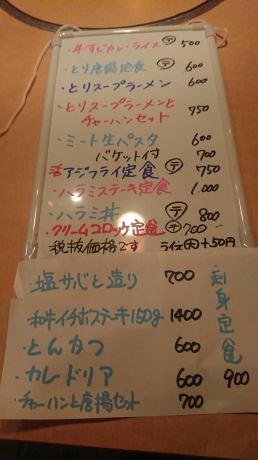 ・牛すじカレーライス テ 500
・とり唐揚定食 テ 600
・とりスープラーメン 600
・とりスープラーメンと
チャーハンセット 750
・ミート生パスタ 600
バケット付 700
活アジフライ定食 テ 750
・ハラミステーキ定食 1.000
・ハラミ丼 テ 800
・クリームコロッケ定食 テ 700
税抜価格です ライス大+50円
・塩サバと造り 700
・和牛イチボステーキ150g 1400
・とんかつ 600
・カレードリア 600
・チャーハンと唐揚セット 700
刺身定食
900